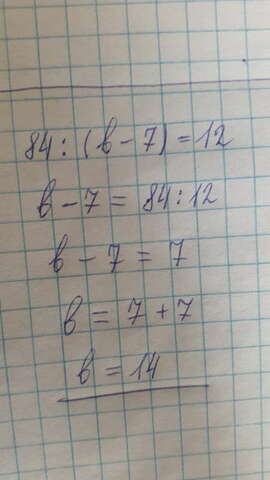 84 : (в - 7) = 12
в - 7 = 84 : 12
в - 7 = 7
в = 7 + 7
в = 14